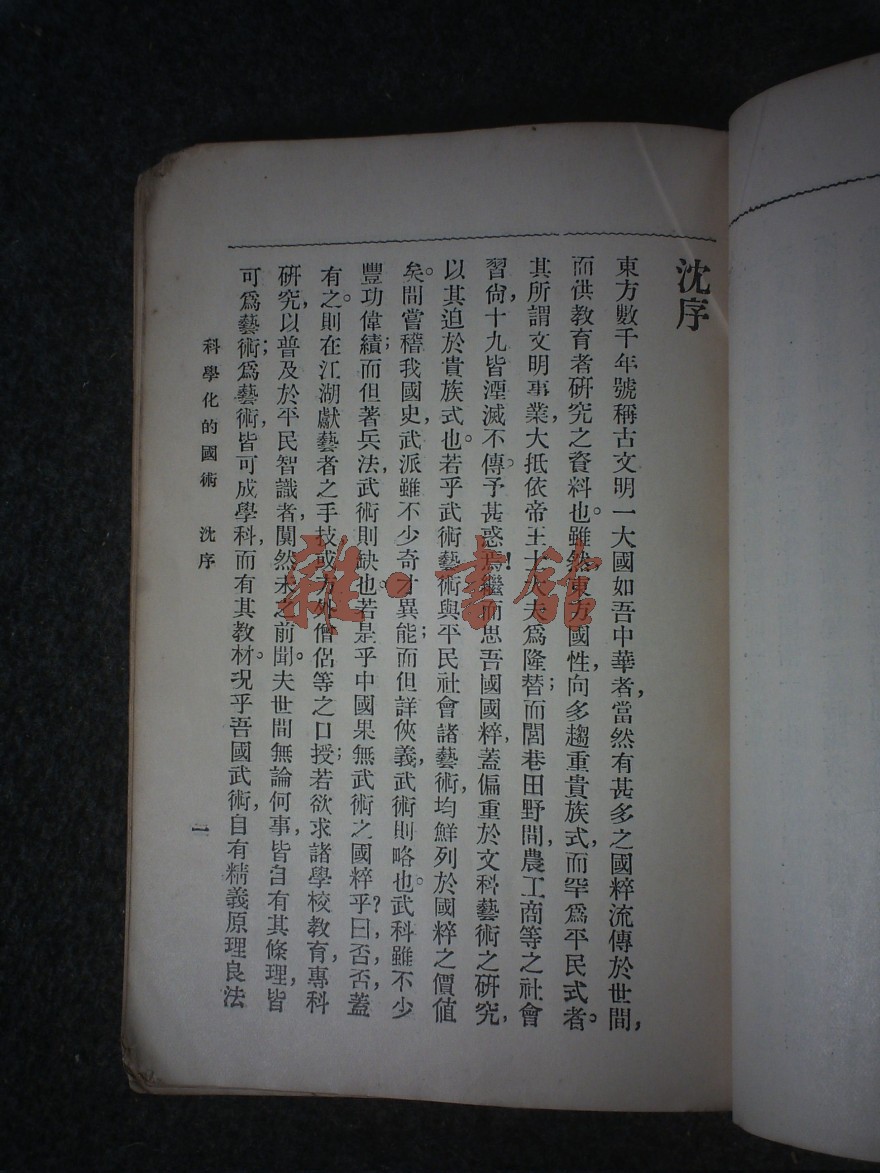 沈序
東方數千年號稱古文明一大國如吾中華者，當然有甚多之國粹流傳於世間，
而供教育者研究之資料也。雖然東方國性，向多趨重貴族式，而罕爲平民式者。
其所謂文明事業，大抵依帝王士大夫爲隆替；而閭巷田野間，農工商等之社會
習尙，十九皆湮滅不傳。予甚惑焉！繼而思吾國國粹，蓋偏重於文科藝術之研究，
以其迫於貴族式也。若乎武術藝術與平民社會諸藝術，均鮮列於國粹之價値
矣。間嘗稽我國史，武派雖不少奇才異能；而但詳俠義，武術則略也。武科雖不少
豐功偉績；而但著兵法，武術則缺也。若是乎中國果無武術之國粹乎？曰否，否，蓋
有之。則在江湖獻藝者之手技，或方外僧侶等之口授；若欲求諸學校教育，專科
研究，以普及於平民智識者，闃然未之前聞。夫世間無論何事，皆自有其條理，皆
可爲藝術；爲藝術，皆可成學科，而有其教材。況乎吾國武術，自有精義原理良法
科學化的國術 沈序
一
雜·書館